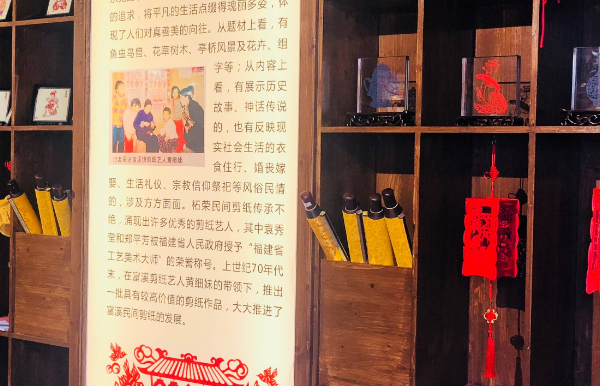 的追求，将平凡的生活点缀得瑰丽多姿，体
现了人们对真善美的向往。从题材上看，有
鱼虫鸟兽、花草树木、亭桥风景及花卉、组
字等；从内容上
看，有展示历史
故事、神话传说
的，也有反映现
实社会生活的衣
食住行、婚丧嫁
娶、生活礼仪、宗教信仰祭祀等风俗民情
的，涉及方方面面。柘荣民间剪纸传承不
绝，涌现出许多优秀的剪纸艺人，其中袁秀
莹和郑平芳被福建省人民政府授予“福建省
工艺美术大师”的荣誉称号。上世纪70年代
末，在富溪剪纸艺人黄细妹的带领下，推出
一批具有较高价值的剪纸作品，大大推进了
富溪民间剪纸的发展。